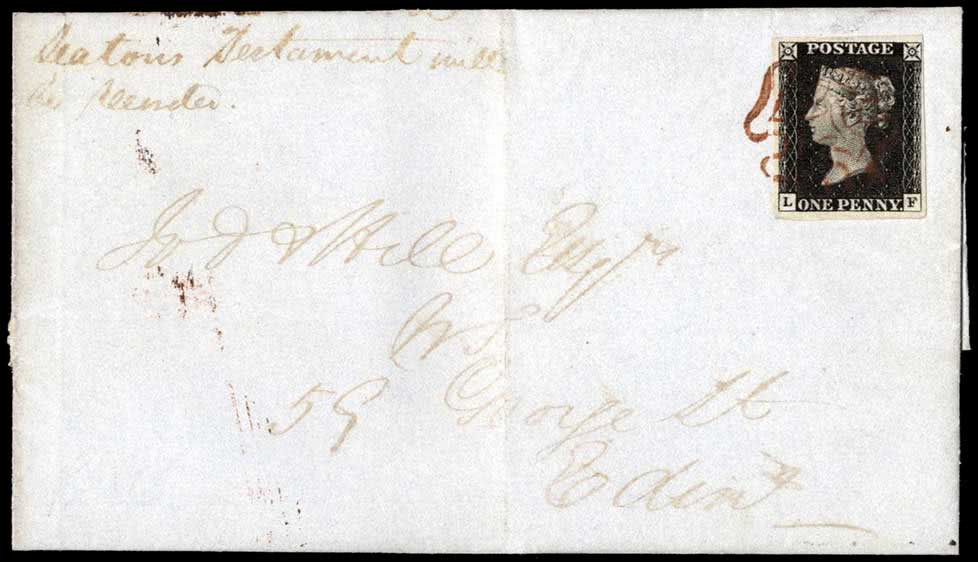 Seatons Testament will
POSTAGE
L ONE PENNY. F
Jo & Hill Esqrs
WS
59 George St
Edinr